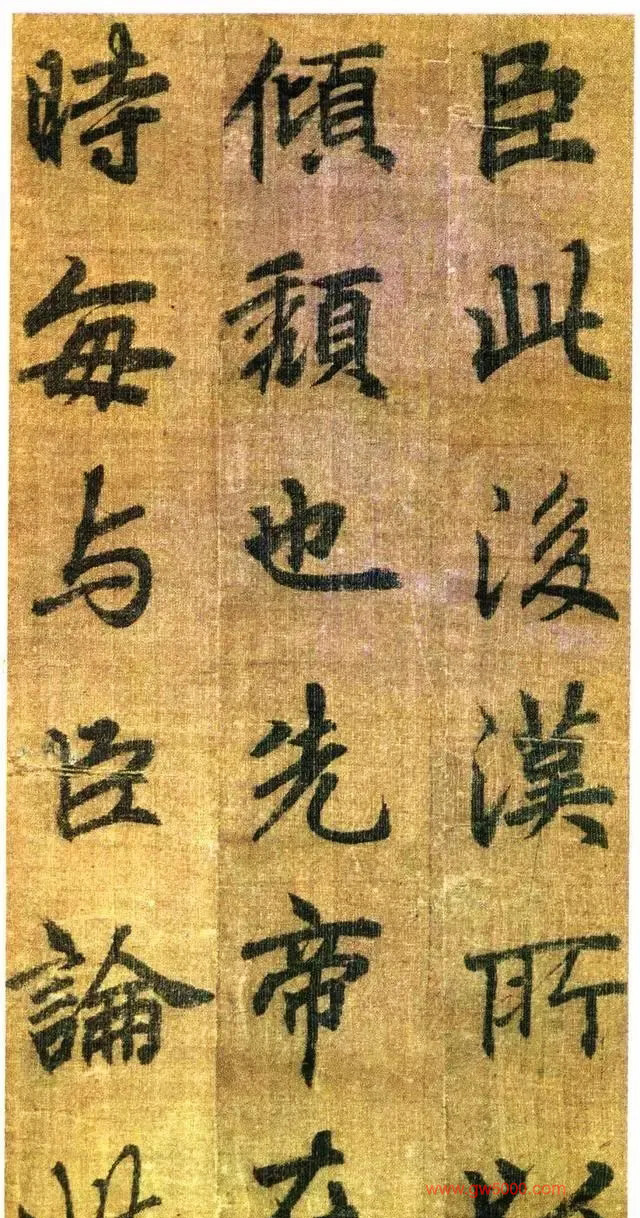 臣此後漢所以
傾頹也先帝在
時每与臣論此
www.gw8000.com